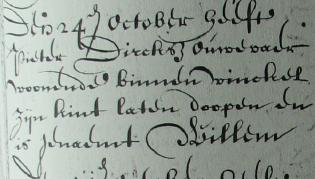 Den 24 October heeft
Pieter Dircksz Ouwevaer
woonende binnen winckel
zijn kint laten doopen en
is genaemt Willem